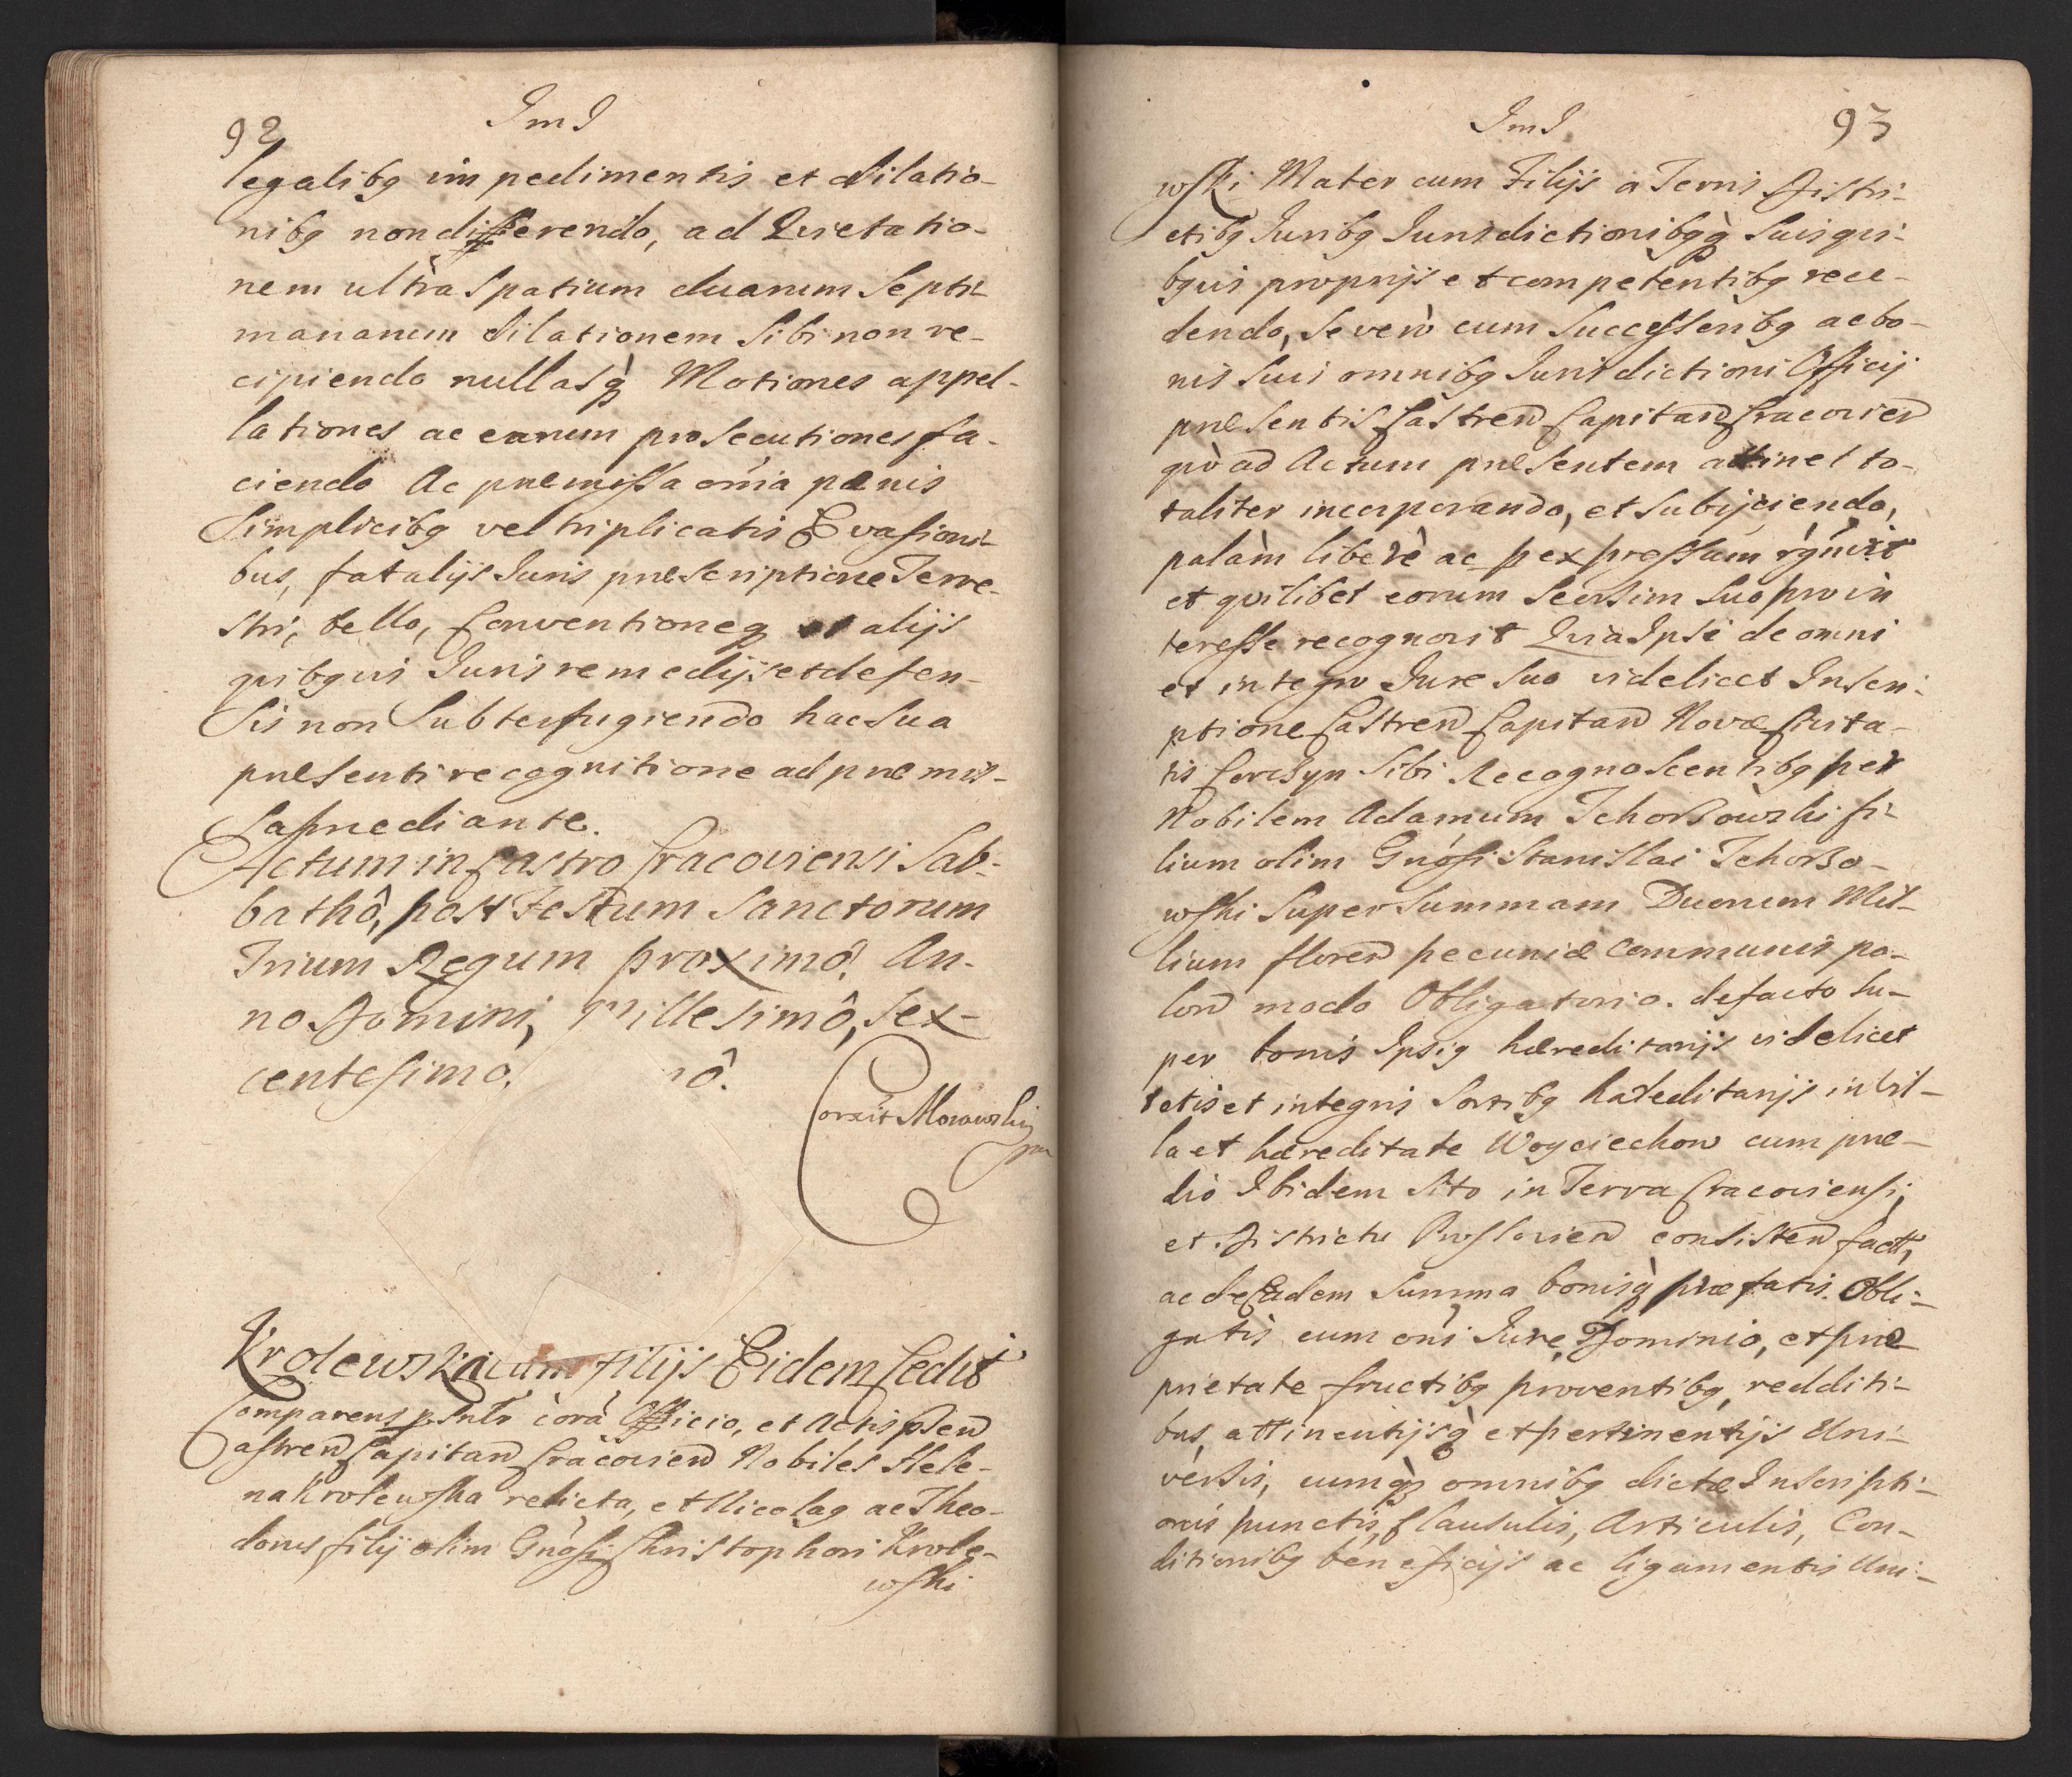 92
JmJ
legalibq impedimentis et dilatio-
nibq non differendo, ad Quietatio-
nem ultra Spatium duarum Septi-
manarum dilationem Sibi non re-
cipiendo nullasq̀ Motiones appel-
lationes ac earum prosecutiones fa-
ciendo Ac præmissa om̄ia pænis
Simplicibq vel triplicatis Evasioni-
bus, fatalijs Juris præscriptione Terre-
stri, bello, Conventioneq et alijs
quibqvis Juris remedijs et defen-
sis non Subterfugiendo hac Sua
præsenti recognitione ad præmis-
sa mediante.
Actum in Castro Cracoviensi Sab-
bathô, post Festum Sanctorum
Trium Regum proximô. An-
no Domini, Millesimô, Sex-
centesimo, nô.
Corexit Morawski
mp
Krolewski cum filijs Eidem Cedit
Comparens p̄sntr corà Officio, et Actis p̄sen
Castren Capitan Cracovien Nobiles Hele-
na Krolewska relicta, et Nicolaq ac Theo-
dorus filij olim Gnosi Christophori Krole-
wski
JmJ
93
wski Mater cum Filijs a Terris Distri-
ctibq Juribq Jurisdictionibqq̀ Suis qui-
bqvis proprijs et competentibq rece-
dendo, se verò cum Successoribq ac bo-
nis Suis omnibq Jurisdictioni Officij
præsentis Castren Capitan Cracovien
quò ad Actum præsentem attinet to-
taliter incorporando, et Subijciendo,
palàm liberè ac p expressum rgnvit
et quilibet eorum Seorsim Suo pro in
teresse recognovit Quia Ipsi de omni
et integro Jure Suo videlicet Inscri-
ptione Castren Capitan Novæ Civita-
tis Corczyn Sibi Recognoscentibq per
Nobilem Adamum Tchorzowski fi-
lium olim Gnosi Stanislai Tchorzo-
wski Super Summam Duorum Mil-
lium floren pecuniæ Communis po-
lon modo Obligatorio. de facto Su-
per bonis Ipsiq hæreditarijs videlicet
totis et integris Sortibq hæreditarijs in Vil-
la et hæreditate Woyciechow cum præ-
dio Ibidem Sito in Terra Cracoviensi,
et Districtu Proszovien consisten fact,
ac de Eadem Summa bonisq̀ præfatis Obli-
gatis cum on̄i Jure, Dominio, et pro
prietate fructibq proventibq, redditi-
bus, attinentijsq̀ et pertinentijs Uni-
versis, cumq̀ omnibq dictæ Inscripti-
onis punctis, Clausulis, Articulis, Con-
ditionibq beneficijs ac ligamentis Uni-